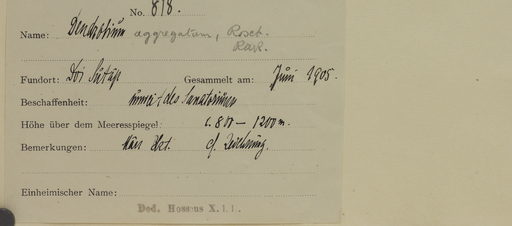 No. 818.
Name: Dendrobium aggregatum, Roxb.
Fundort: Doi Sutäp Gesammelt am: Juni 1905.
Beschaffenheit: des Sanatoriums
Höhe über dem Meeresspiegel: c. 800 — 1200 m.
Bemerkungen: cf. Zeichnung.
Einheimischer Name:
Ded. Hosseus X.11.